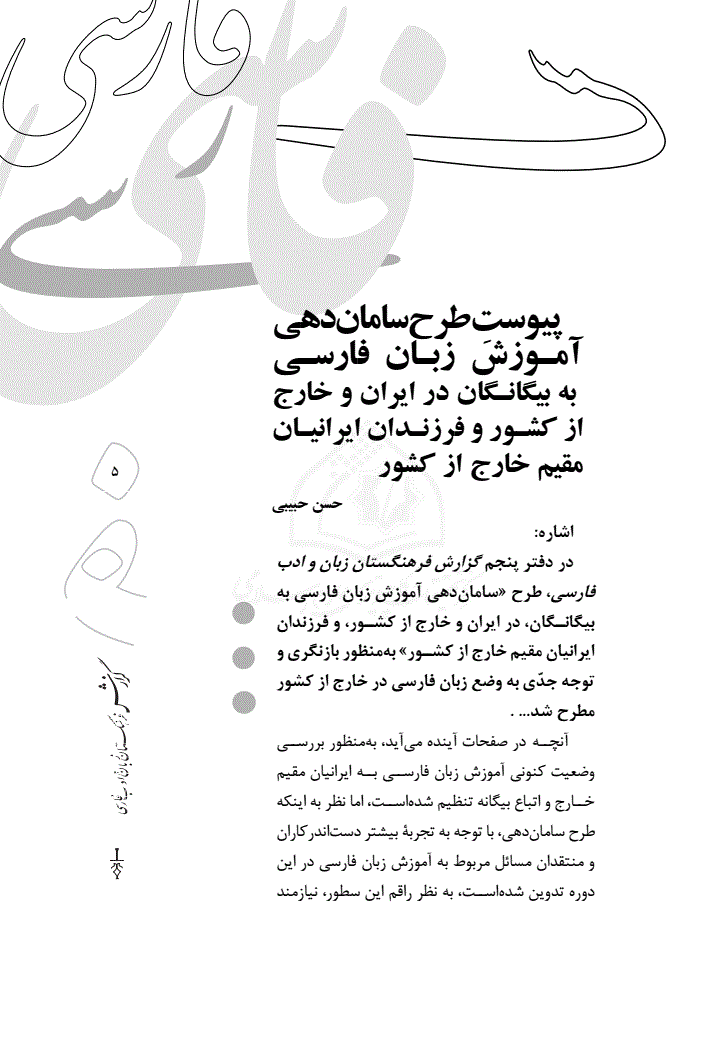 فارسی
فارسی
پیوست طرح سامان‌دهی
آمـوزشَ زبـان فارسـی
به بیگانـگان در ایران و خارج
از کشـور و فرزنـدان ایرانیـان
مقیم خارج از کشور
حسن حبیبی
اشاره:
در دفتر پنجم گزارش فرهنگستان زبان و ادب
فارسی، طرح «سامان‌دهی آموزش زبان فارسی به
بیگانــگان، در ایران و خارج از کشــور، و فرزندان
ایرانیان مقیم خارج از کشــور» به‌منظور بازنگری و
توجه جدّی به وضع زبان فارسی در خارج از کشور
مطرح شد... .
آنچــه در صفحات آینده می‌آید، به‌منظور بررســی
وضعیت کنونی آموزش زبان فارســی بــه ایرانیان مقیم
خــارج و اتباع بیگانه تنظیم شده‌اســت، اما نظر به اینکه
طرح سامان‌دهی، با توجه به تجربهٔ بیشتر دست‌اندرکاران
و منتقدان مسائل مربوط به آموزش زبان فارسی در این
دوره تدوین شده‌اســت، به نظر راقم این سطور، نیازمند
۵
گزارش فرهنگستان زبان و ادب فارسی